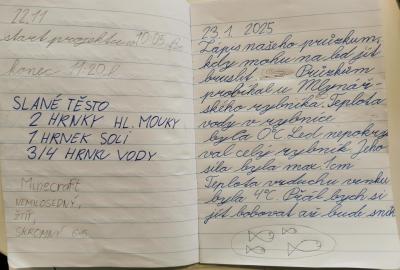 22.11
start projektu v 10:05
konec 11:20
SLANÉ TĚSTO
2 HRNKY HL. MOUKY
1 HRNEK SOLI
3/4 HRNKU VODY
Minecraft
NEMILOSEDNÝ
ŠTÍT
SKROMNÝ
23.1 2025
Zápis našeho průzkum,
kdy mohu na led jít
bruslit. Průzkum
probíhal u Mlynář-
ského rybníka. Teplota
vody v rybníce
byla 0°C Led nepokrý
val celý rybník Jeho
síla byla max. 1cm
Teplota vzduchu venku
byla 4°C. Přál bych si
jít bobovat až bude sníh